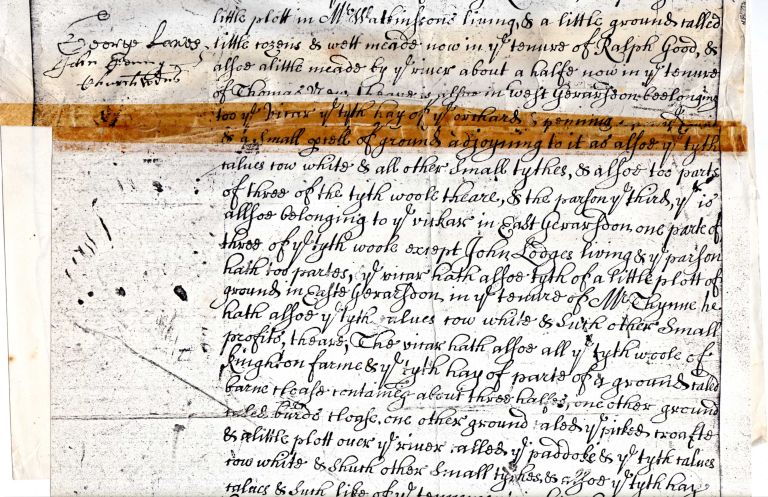 little plott in Mr Watkinsons living, & a little ground called
George
little cozens & wett meade now in ye tenure of Ralph Good, &
John
allsoe a little meade by ye river about a halfe now in ye tenure
Churchwdns
of Thomas theare is allsoe in west Gerarsdon beelonging
too ye vicar ye tyth hay of ye orchard
& a small prcell of ground adjoyning to it as allsoe ye tyth
calues cow white & all other small tythes, & allsoe too parts
of three of the tyth woole theare, & the parson ye third, yr is
allsoe belonging to ye vickar in East Gerarsdon one parte of
three of ye tyth woole except John Lodges living & ye parson
hath too partes, ye vicar hath allsoe tyth of a little plott of
ground in Easte Gerarsdon in ye tenure of Mr Thynne he
hath allsoe ye tyth calues cow white & such other small
profits, theare, The vicar hath allsoe all ye tyth woole of
Knighton farme & ye tyth hay of parte of a ground caled
barne close containeg about three halfes, one other ground
caled burds close, one other ground caled ye picked croafte
& a little plott over ye river called ye paddoke & ye tyth calues
cow white & shuch other small tythes & allsoe ye tyth hay
calues & such like of ye